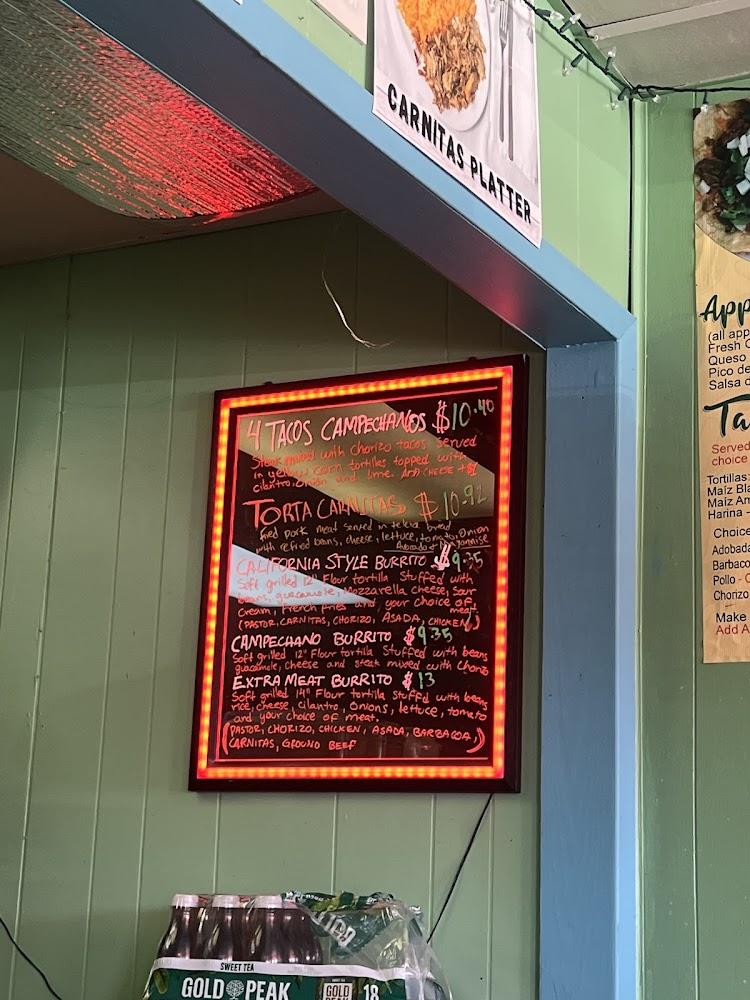 CARNITAS PLATTER
4 TACOS CAMPECHANOS $10.40
Steak mixed with Chorizo tacos served
in yellow corn tortillas topped with
cilantro, onion and lime. ADD CHEESE +$1
TORTA CARNITAS $10.92
fried pork meat served in telera bread
with refried beans, cheese, lettuce, tomato, Onion
Avocado + Mayonnise
CALIFORNIA STYLE BURRITO $9.35
Soft grilled 12" Flour tortilla Stuffed with
beans, guacamole, Mozzarella cheese, Sour
cream, French fries and your choice of
meat.
(PASTOR, CARNITAS, CHORIZO, ASADA, CHICKEN)
CAMPECHANO BURRITO $9.35
Soft grilled 12" Flour tortilla Stuffed with beans
guacamole, cheese and steak mixed with Chorizo
EXTRA MEAT BURRITO $13
Soft grilled 14" Flour tortilla stuffed with beans
rice, cheese, cilantro, Onions, lettuce, tomato
and your choice of meat.
(PASTOR, CHORIZO, CHICKEN, ASADA, BARBACOA,
CARNITAS, GROUND BEEF)
App
(all app
Fresh G
Queso
Pico de
Salsa
Ta
Served
choice
Tortillas:
Maíz Bla
Maíz Am
Harina -
Choice
Adobada
Barbaco
Pollo - C
Chorizo
Make
Add A
SWEET TEA
GOLD PEAK
GOLD
PEAK
18